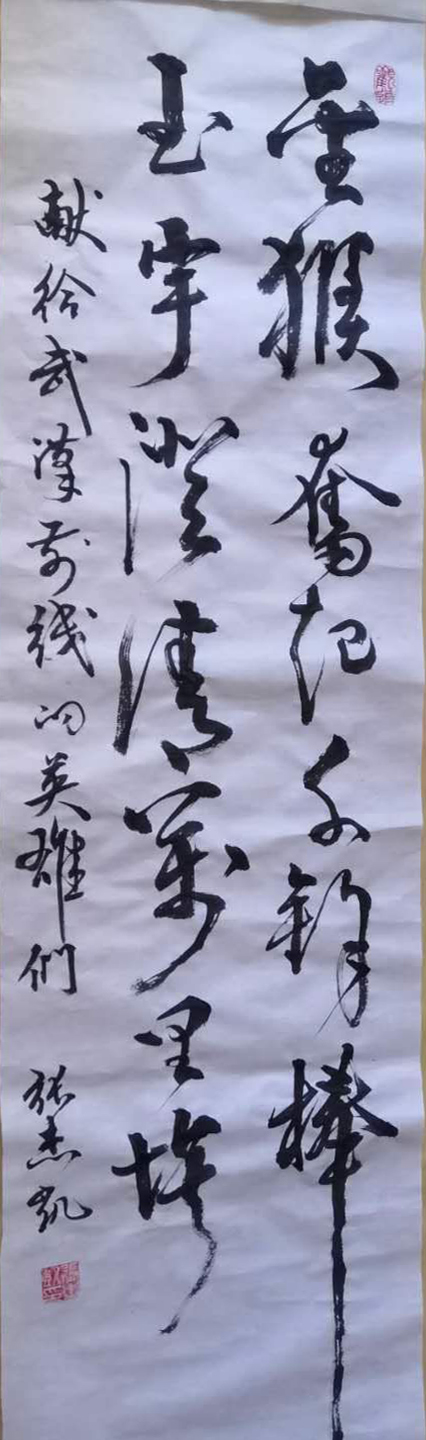 金猴奮起千鈞棒
玉宇澄清萬里埃
献给武漢前线的英雄们
张杰凯